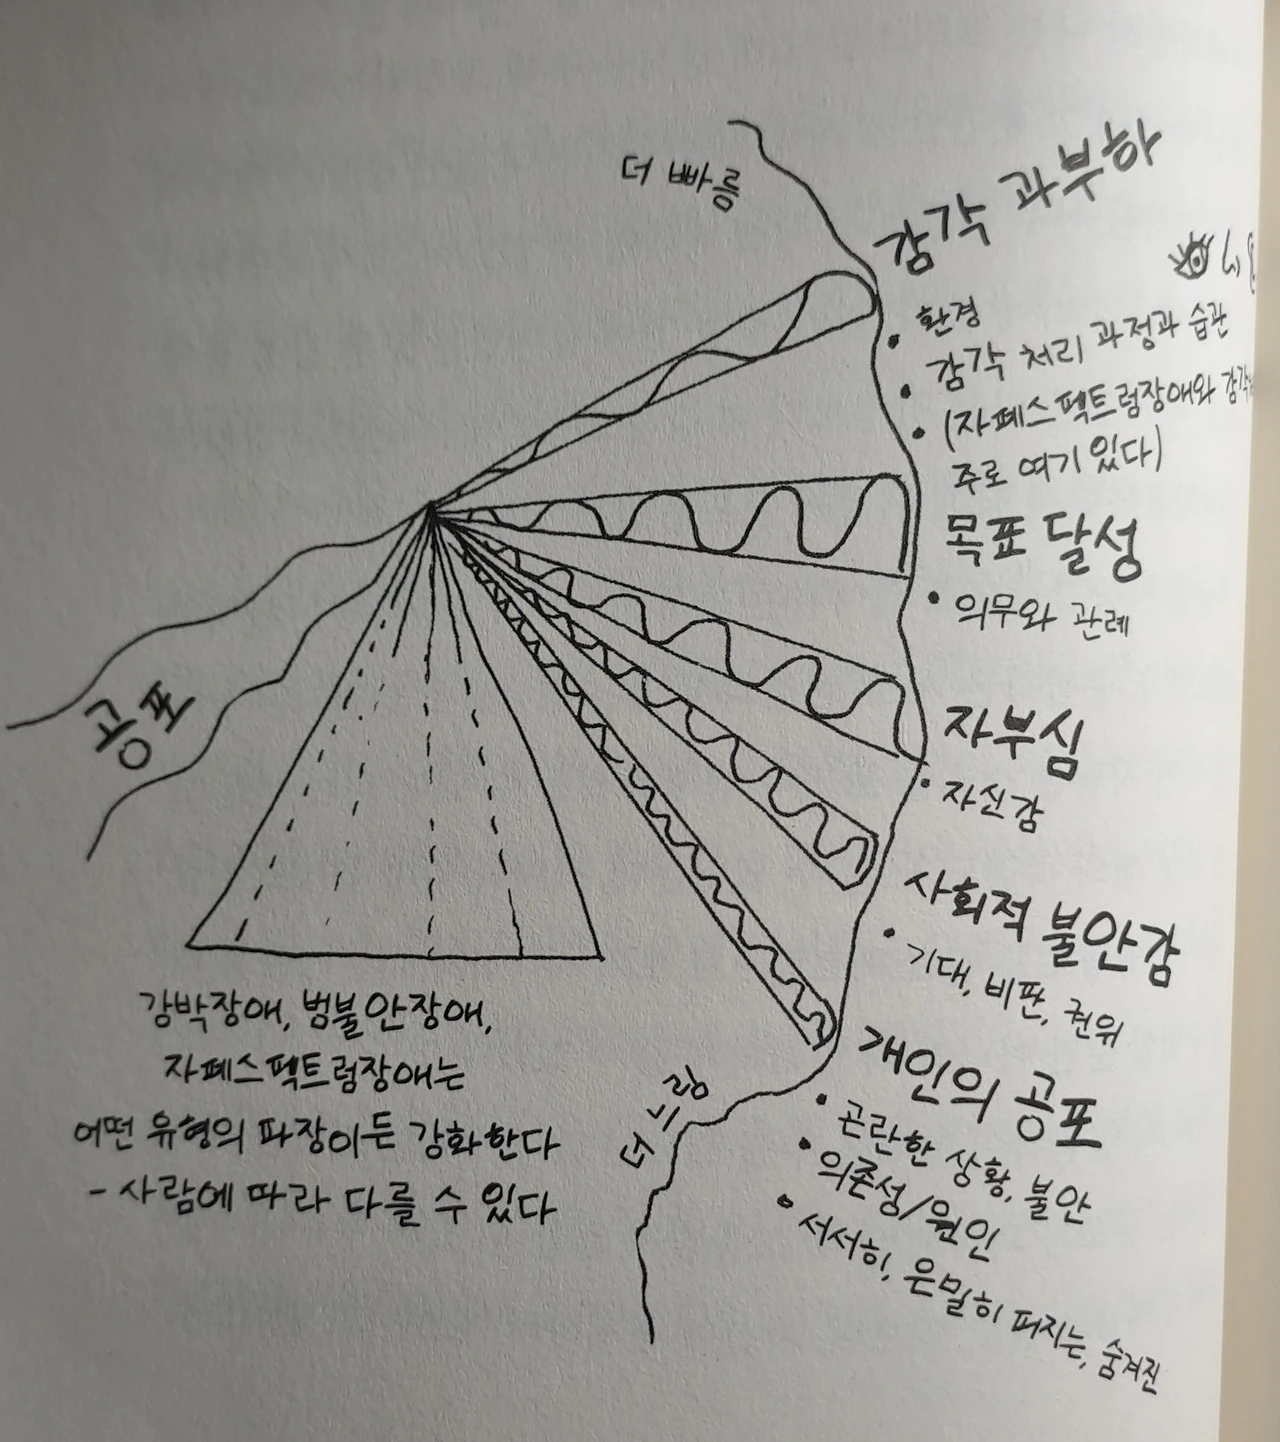 더 빠름
감각 과부하
• 환경
• 감각 처리 과정과 습관
• (자폐스펙트럼장애와
주로 여기 있다)
목표 달성
• 의무와 관례
자부심
• 자신감
사회적 불안감
• 기대, 비판, 권위
개인의 공포
• 곤란한 상황, 불안
• 의존성/원인
• 서서히, 은밀히 퍼지는, 숨겨진
더 느림
공포
강박장애, 범불안장애,
자폐스펙트럼장애는
어떤 유형의 파장이든 강화한다
- 사람에 따라 다를 수 있다